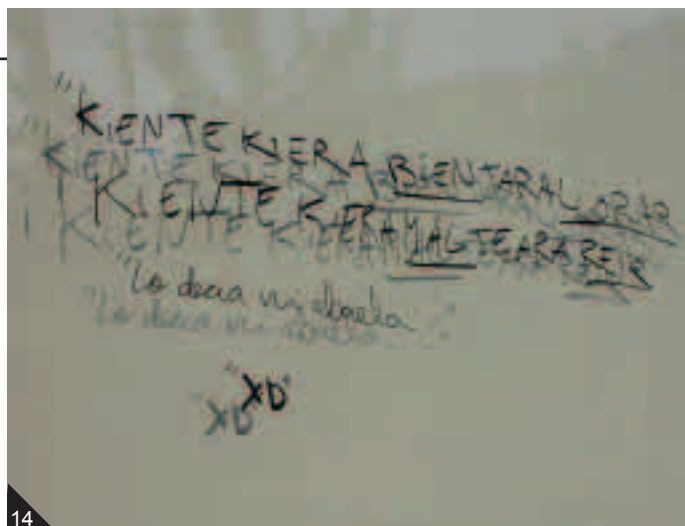 "KIENTE KIERA BIENTARAL LORAR
KIENTE KIERA MALTEARA REIR
"Lo decia mi abuela"
"XD"
14